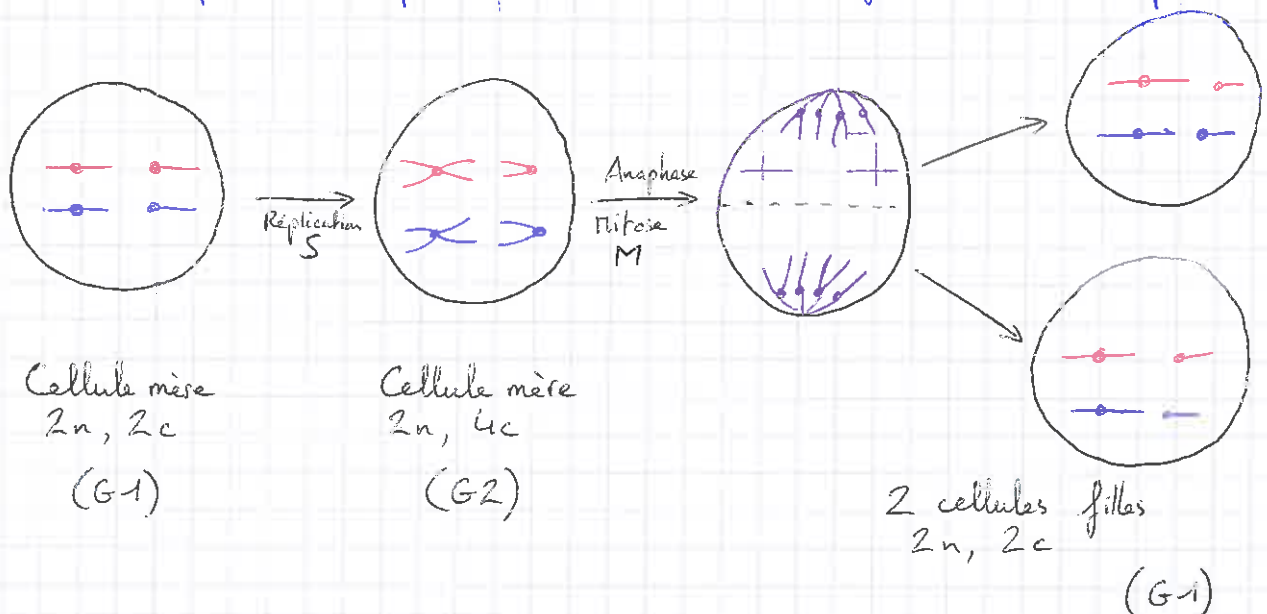 Réplication
S
Anaphase
Mitose
M
Cellule mère
2n, 2c
(G1)
Cellule mère
2n, 4c
(G2)
2 cellules filles
2n, 2c
(G1)